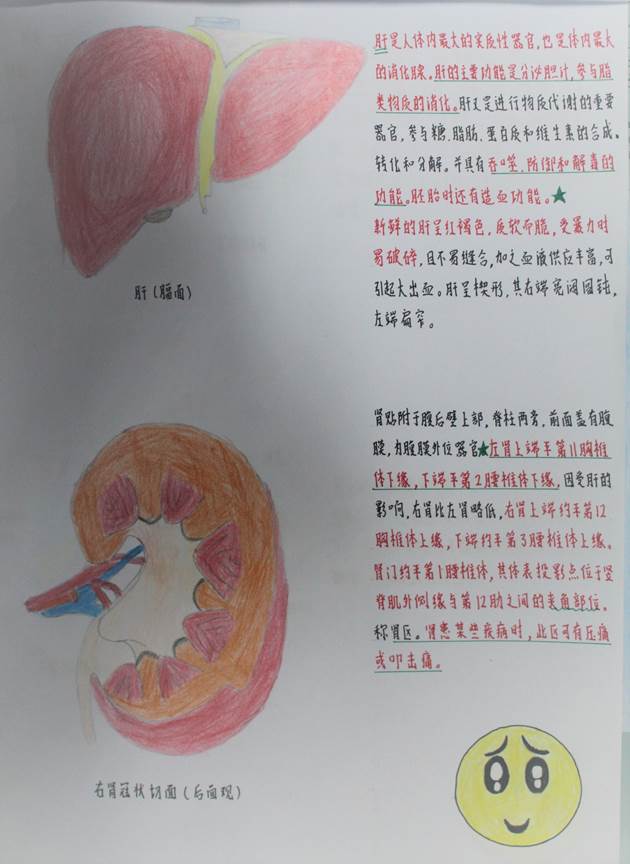 肝是人体内最大的实质性器官,也是体内最大
的消化腺。肝的主要功能是分泌胆汁,参与脂
类物质的消化。肝又是进行物质代谢的重要
器官,参与糖、脂肪、蛋白质和维生素的合成、
转化和分解。并具有吞噬、防御和解毒的
功能。胚胎时还有造血功能。
新鲜的肝呈红褐色,质软而脆,受暴力时
易破碎,且不易缝合,加之血液供应丰富,可
引起大出血。肝呈楔形,其右端宽阔圆钝,
左端扁窄。
肝(膈面)
肾贴附于腹后壁上部,脊柱两旁,前面盖有腹
膜,为腹膜外位器官 左肾上端平第11胸椎
体下缘,下端平第2腰椎体下缘,因受肝的
影响,右肾比左肾略低,右肾上端约平第12
胸椎体上缘,下端约平第3腰椎体上缘。
肾门约平第1腰椎体,其体表投影点位于竖
脊肌外侧缘与第12肋之间的夹角部位。
称肾区。肾患某些疾病时,此区可有压痛
或叩击痛。
右肾冠状切面(后面观)